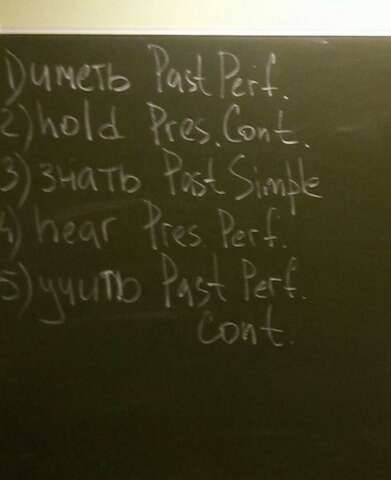 1) иметь Past Perf.
2) hold Pres. Cont.
3) знать Past Simple
4) hear Pres. Perf.
5) учить Past Perf.
Cont.